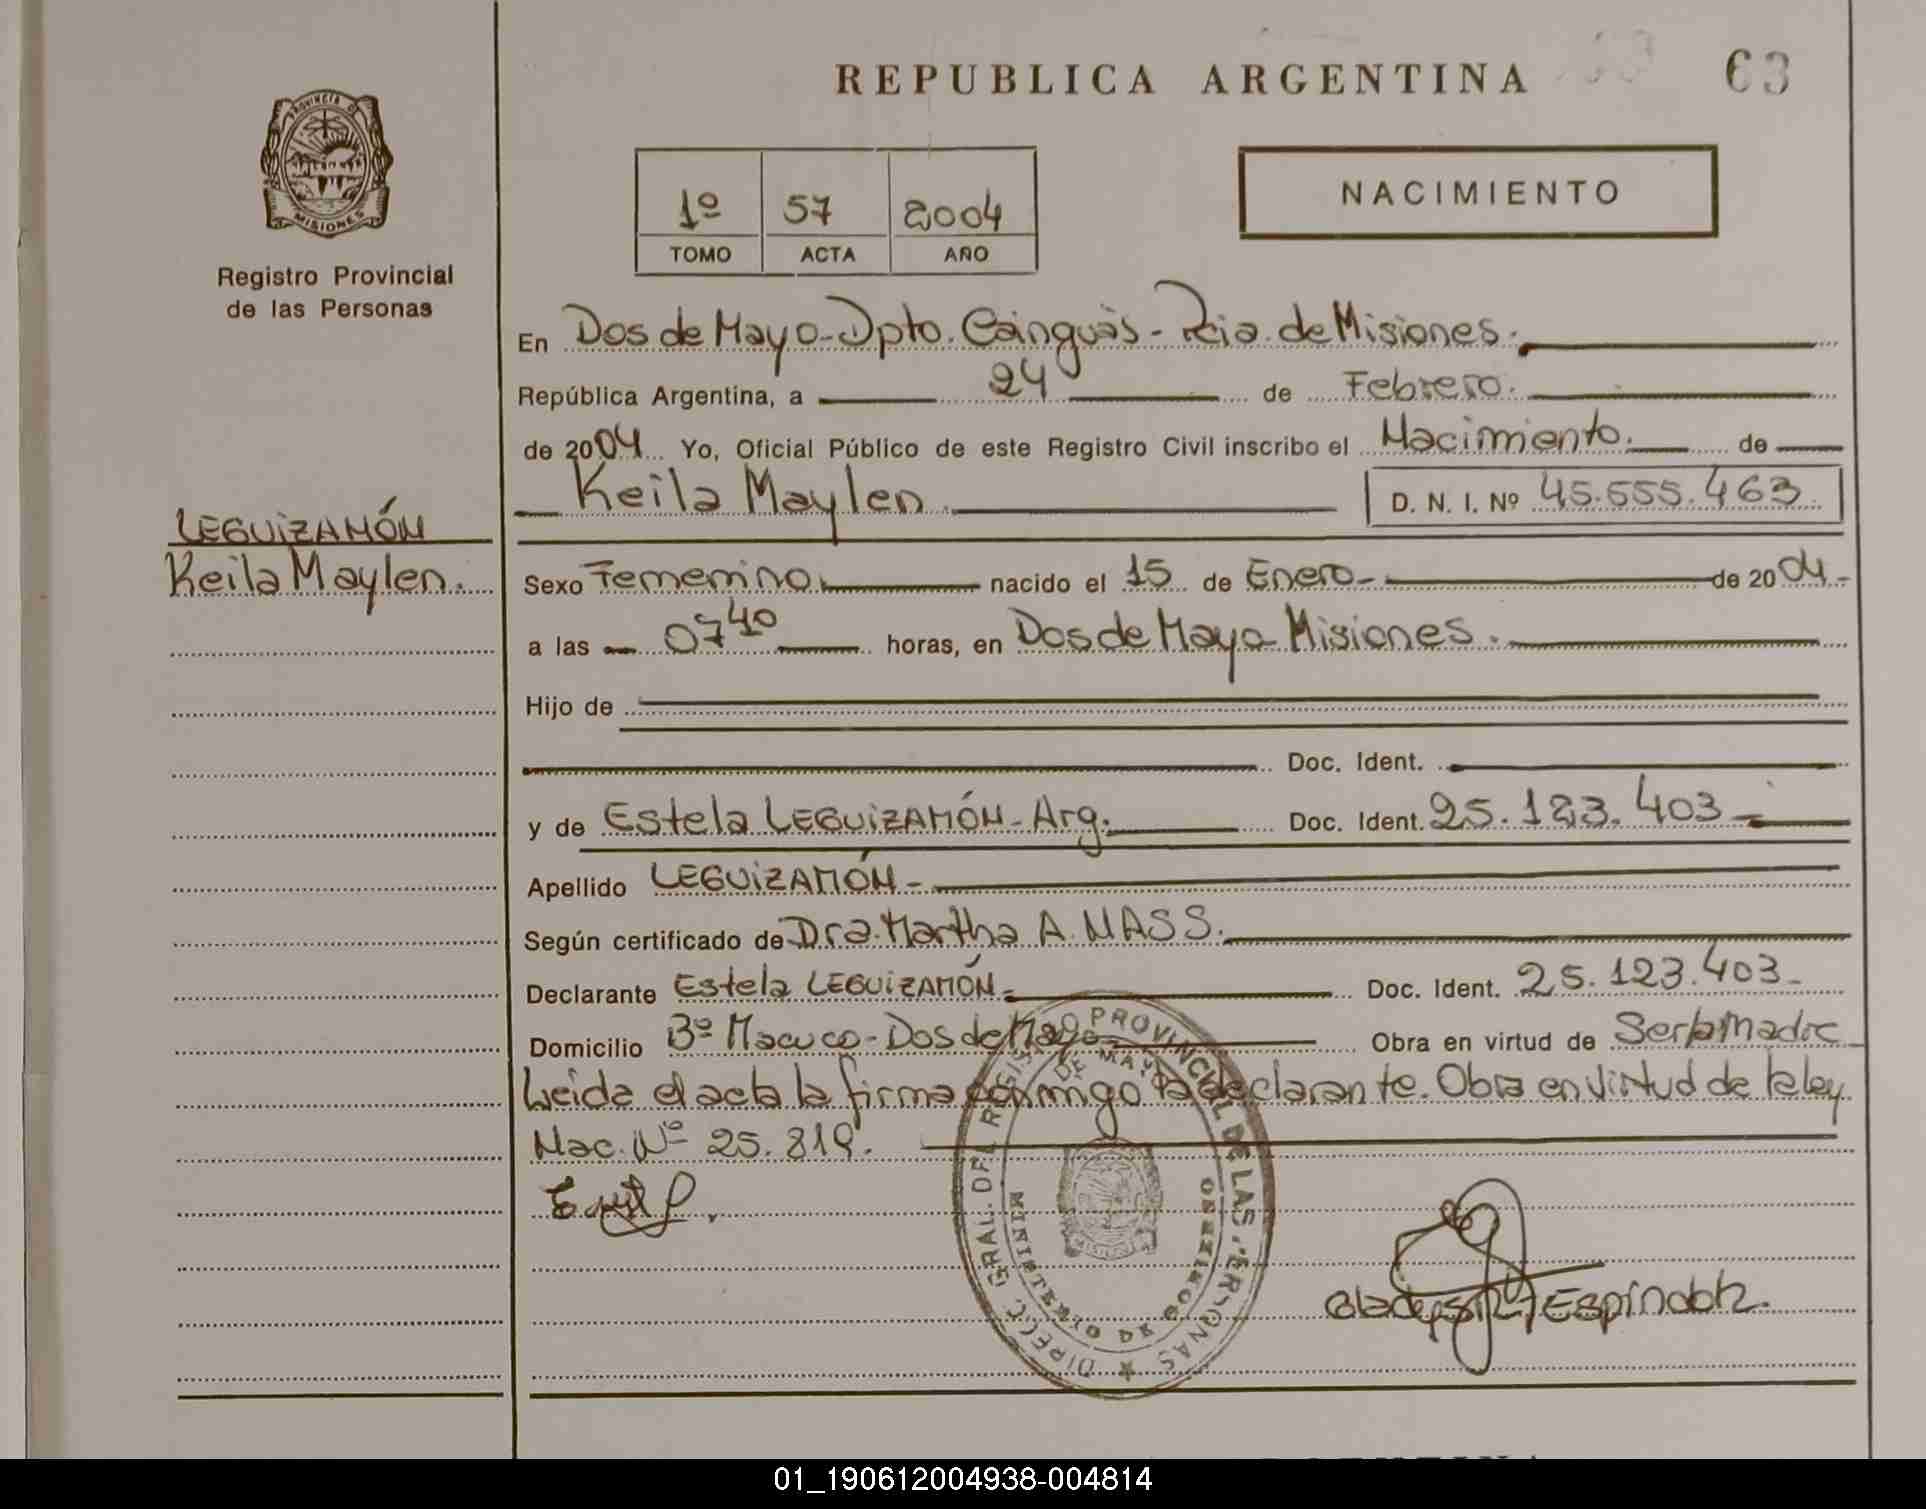 REPUBLICA ARGENTINA
63
PROVINCIA DE
MISIONES
Registro Provincial
de las Personas
1º 57 2004
TOMO ACTA AÑO
NACIMIENTO
En Dos de Mayo-Dpto. Cainguás-Pcia. de Misiones.
República Argentina, a 24 de Febrero.
de 2004 Yo, Oficial Público de este Registro Civil inscribo el Nacimiento. de
Keila Maylen. D. N. I. Nº 45.555.463
LEGUiZAMÓN
Keila Maylen.
Sexo Femenino. nacido el 15 de Enero- de 2004-
a las 07 40 horas, en Dos de Mayo-Misiones.
Hijo de
Doc. Ident.
y de Estela LEGUiZAMÓN-Arg. Doc. Ident. 25.123.403-
Apellido LEGUiZAMÓN-
Según certificado de Dra. Martha A. MASS.
Declarante Estela LEGUiZAMÓN- Doc. Ident. 25.123.403-
Domicilio Bº Macuco-Dos de Mayo- Obra en virtud de Ser la Madre
Leida el acta la firma conmigo la declarante. Obra en virtud de la ley
Nac. Nº 25.819.
DIRECC. GRAL. DEL REGIS. PROVINCIAL DE LAS PERSONAS
DE MAYO
MINISTERIO DE GOBIERNO
Espíndola
01_190612004938-004814